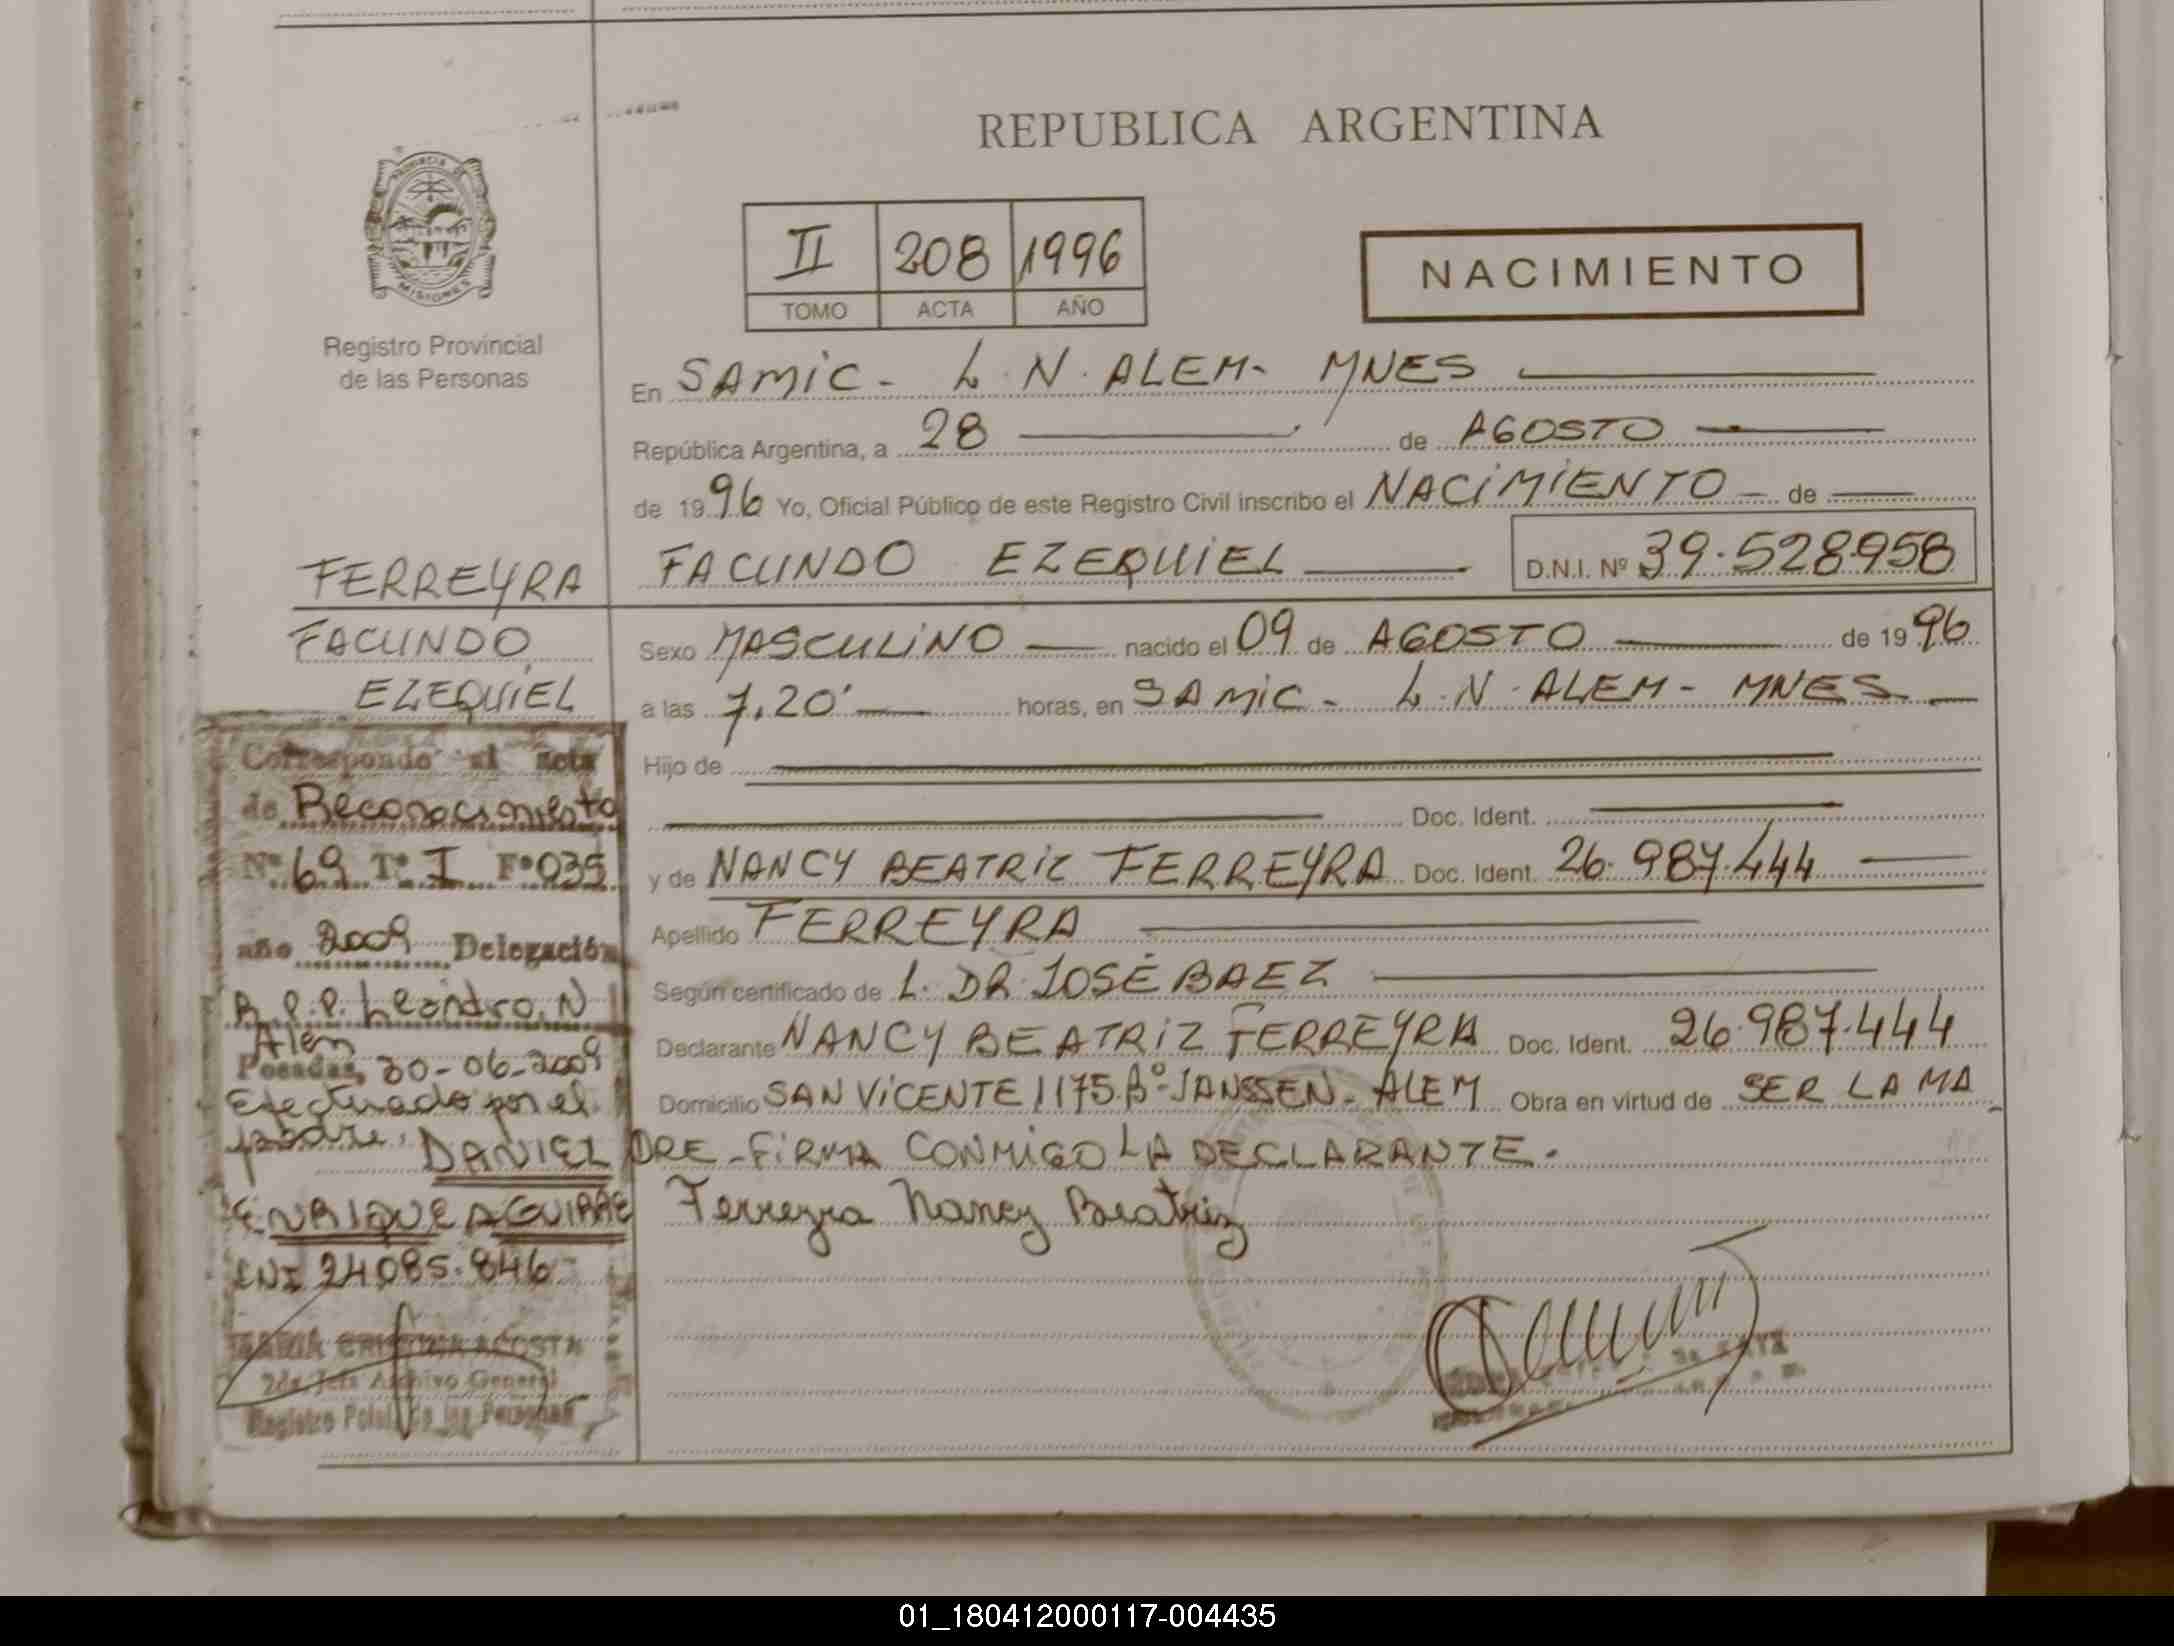 REPUBLICA ARGENTINA
PROVINCIA DE
MISIONES
Registro Provincial
de las Personas
II 208 1996
TOMO ACTA AÑO
NACIMIENTO
En SAMIC - L.N.ALEM - MNES
República Argentina, a 28 de AGOSTO
de 1996 Yo, Oficial Público de este Registro Civil inscribo el NACIMIENTO - de
FACUNDO EZEQUIEL D.N.I. Nº 39.528.958
Sexo MASCULINO nacido el 09 de AGOSTO de 1996
a las 7,20' horas, en SAMIC - L.N.ALEM - MNES
Hijo de
Doc. Ident.
y de NANCY BEATRIZ FERREYRA Doc. Ident. 26.987.444
Apellido FERREYRA
Según certificado de L. DR. JOSÉ BAEZ
Declarante NANCY BEATRIZ FERREYRA Doc. Ident. 26.987.444
Domicilio SAN VICENTE 1175.Bº-JANSSEN - ALEM Obra en virtud de SER LA MA
DRE - FIRMA CONMIGO LA DECLARANTE.
Ferreyra Nancy Beatriz
FERREYRA
FACUNDO
EZEQUIEL
Corresponde al acta
de Reconocimiento
Nº 69 Tº I Fº 035
año 2009 Delegación
R.P.P. Leandro N
Alem
Posadas, 30-06-2009
Efectuado por el
padre, DANIEL
ENRIQUE AGUIRRE
DNI 24085.846
MARIA CRISTINA ACOSTA
2da Jefa Archivo General
Registro Pcial. de las Personas
01_180412000117-004435